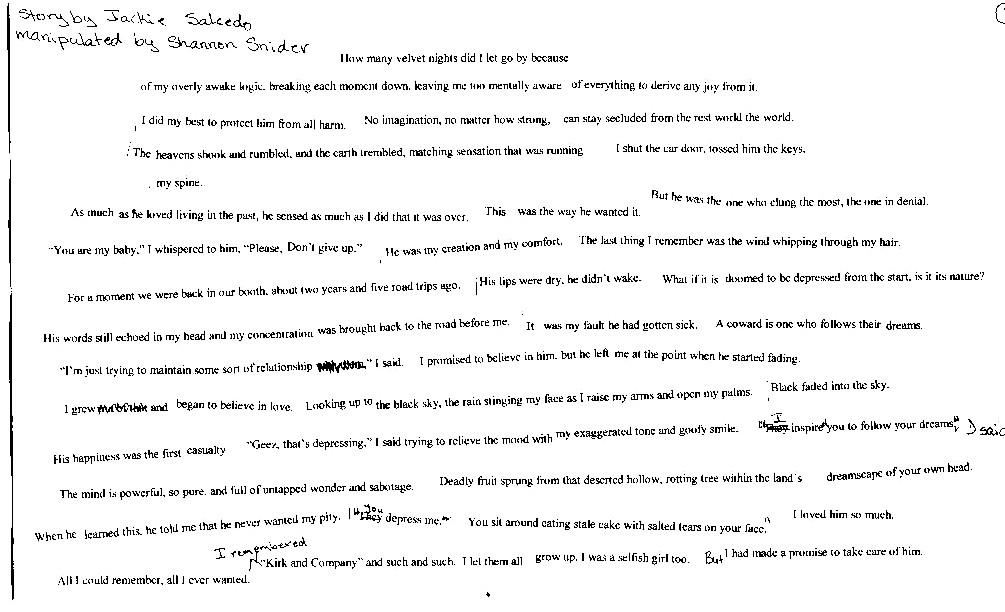 Story by Jackie Salcedo
manipulated by Shannon Snider
How many velvet nights did I let go by because
of my overly awake logic, breaking each moment down, leaving me too mentally aware of everything to derive any joy from it.
I did my best to protect him from all harm. No imagination, no matter how strong, can stay secluded from the rest world the world.
The heavens shook and rumbled, and the earth trembled, matching sensation that was running I shut the car door, tossed him the keys.
my spine.
As much as he loved living in the past, he sensed as much as I did that it was over. This was the way he wanted it. But he was the one who clung the most, the one in denial.
"You are my baby," I whispered to him, "Please, Don't give up." He was my creation and my comfort. The last thing I remember was the wind whipping through my hair.
For a moment we were back in our booth, about two years and five road trips ago. His lips were dry, he didn't wake. What if it is doomed to be depressed from the start, is it its nature?
His words still echoed in my head and my concentration was brought back to the road before me. It was my fault he had gotten sick. A coward is one who follows their dreams.
"I'm just trying to maintain some sort of relationship," I said. I promised to believe in him, but he left me at the point when he started fading.
I grew and began to believe in love. Looking up to the black sky, the rain stinging my face as I raise my arms and open my palms. Black faded into the sky.
His happiness was the first casualty "Geez, that's depressing," I said trying to relieve the mood with my exaggerated tone and goofy smile. "I inspire you to follow your dreams," I said
The mind is powerful, so pure, and full of untapped wonder and sabotage. Deadly fruit sprung from that deserted hollow, rotting tree within the land's dreamscape of your own head.
When he learned this, he told me that he never wanted my pity. "You depress me." You sit around eating stale cake with salted tears on your face." I loved him so much.
All I could remember, all I ever wanted. I remembered "Kirk and Company" and such and such. I let them all grow up, I was a selfish girl too. But I had made a promise to take care of him.